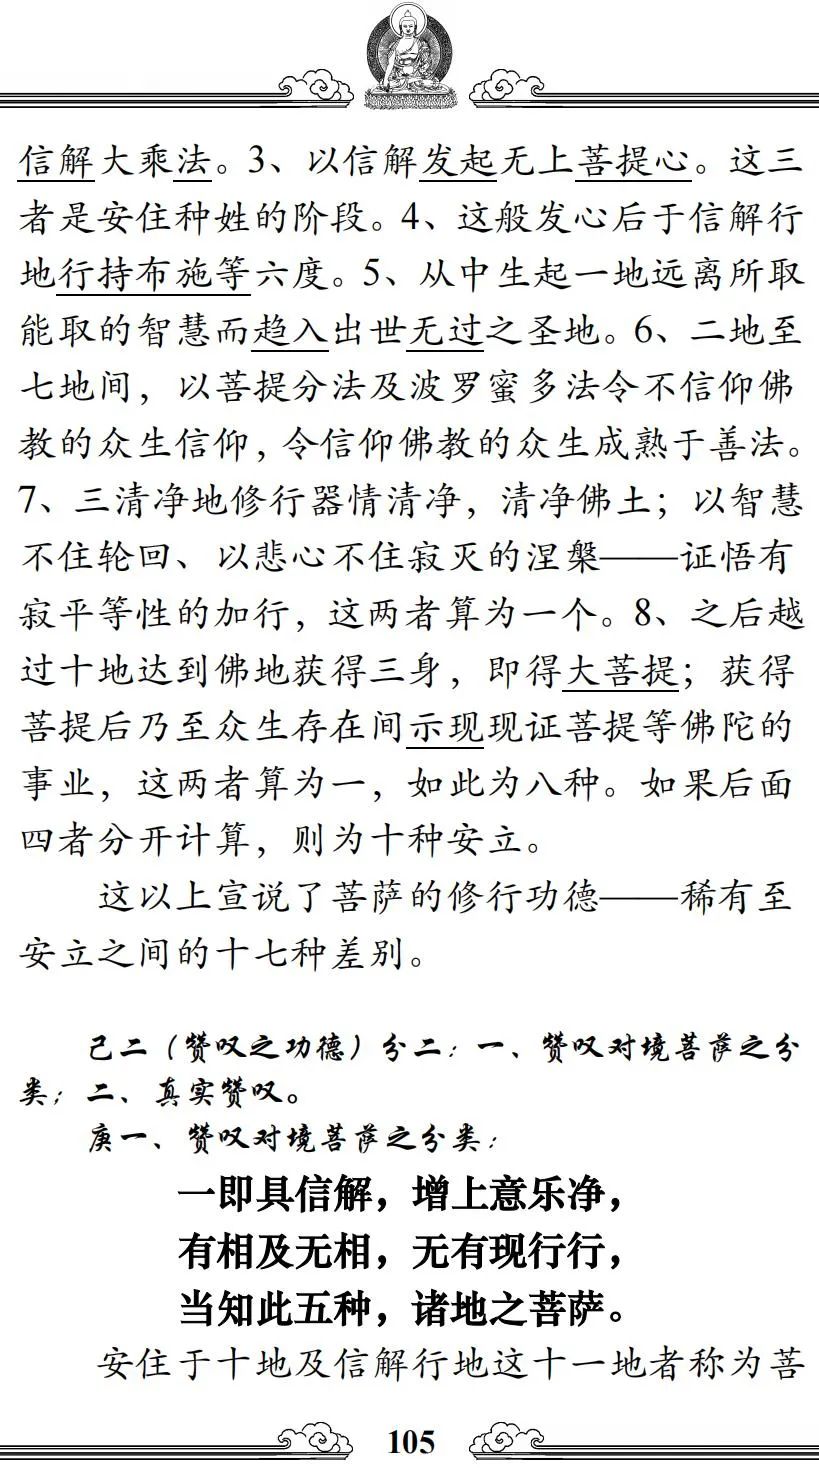 信解大乘法。3、以信解发起无上菩提心。这三
者是安住种姓的阶段。4、这般发心后于信解行
地行持布施等六度。5、从中生起一地远离所取
能取的智慧而趋入出世无过之圣地。6、二地至
七地间，以菩提分法及波罗蜜多法令不信仰佛
教的众生信仰，令信仰佛教的众生成熟于善法。
7、三清净地修行器情清净，清净佛土；以智慧
不住轮回、以悲心不住寂灭的涅槃——证悟有
寂平等性的加行，这两者算为一个。8、之后越
过十地达到佛地获得三身，即得大菩提；获得
菩提后乃至众生存在间示现现证菩提等佛陀的
事业，这两者算为一，如此为八种。如果后面
四者分开计算，则为十种安立。
这以上宣说了菩萨的修行功德——稀有至
安立之间的十七种差别。
己二（赞叹之功德）分二：一、赞叹对境菩萨之分
类；二、真实赞叹。
庚一、赞叹对境菩萨之分类：
一即具信解，增上意乐净，
有相及无相，无有现行行，
当知此五种，诸地之菩萨。
安住于十地及信解行地这十一地者称为菩
105